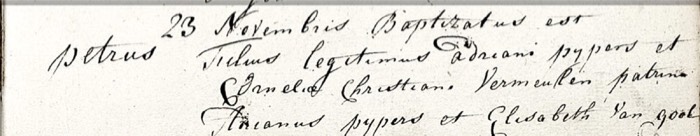 23 Novembris Baptizatus est
petrus Filius legitimus adriani pypers et
Cornelia Christiani Vermeulen patrini
Adrianus pypers et Elisabeth Van gool